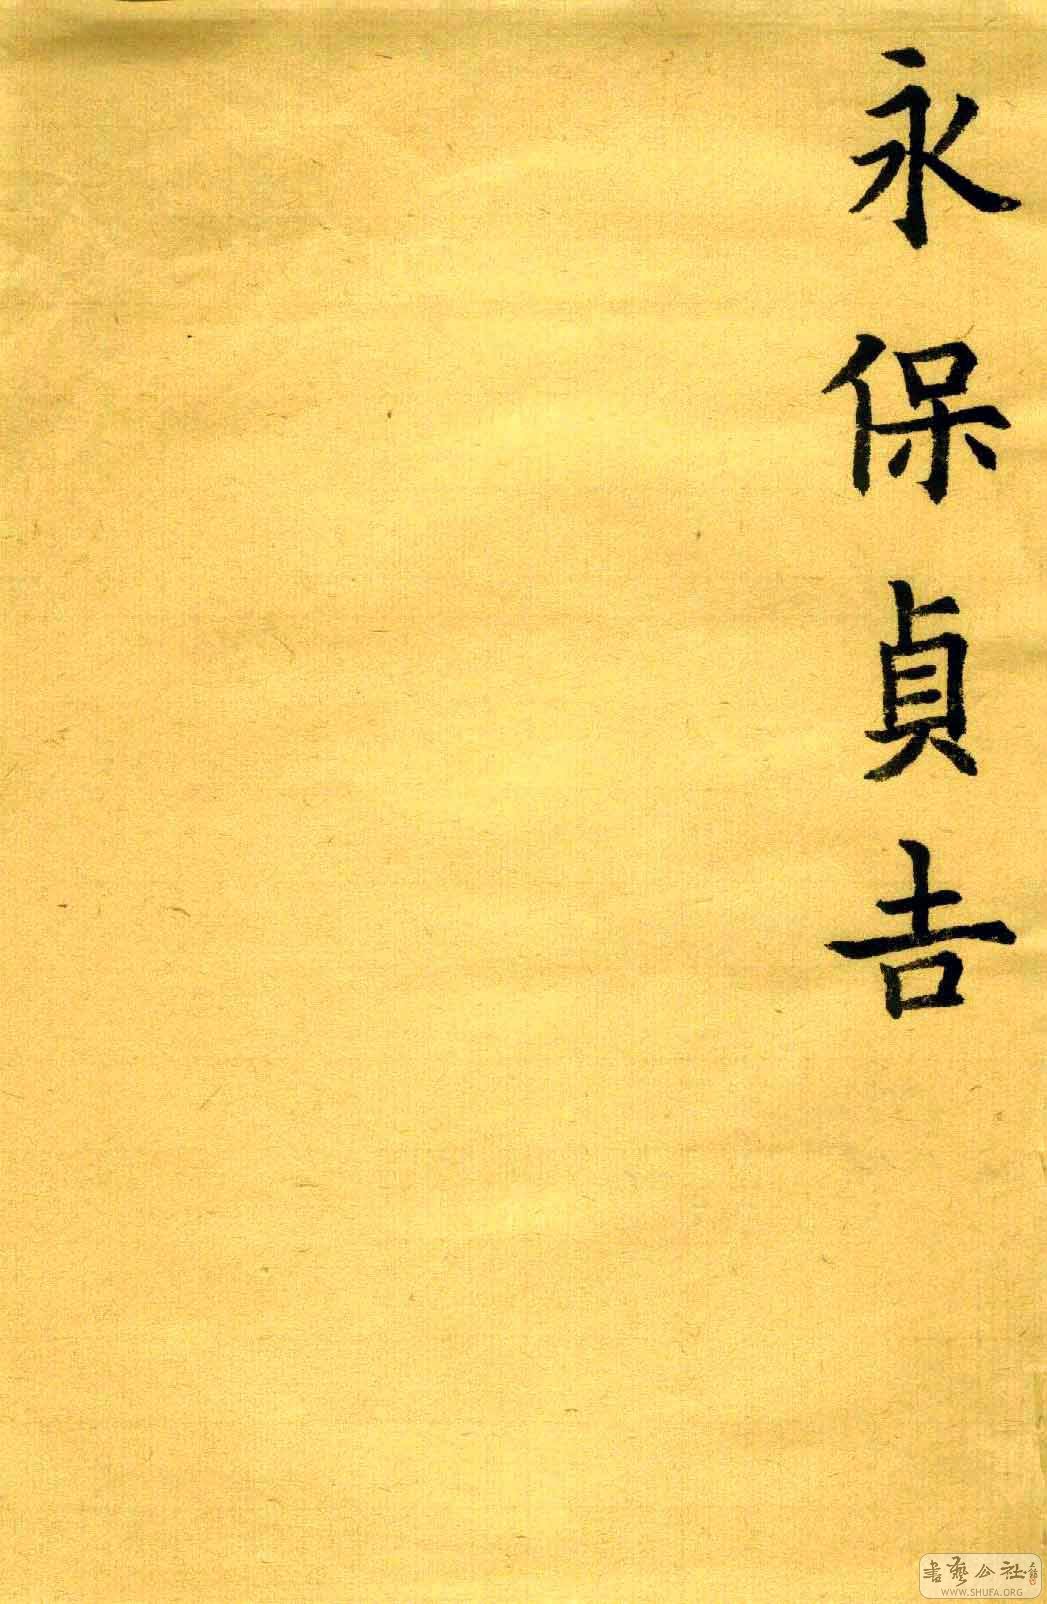 永保貞吉
书艺公社
WWW.SHUFA.ORG